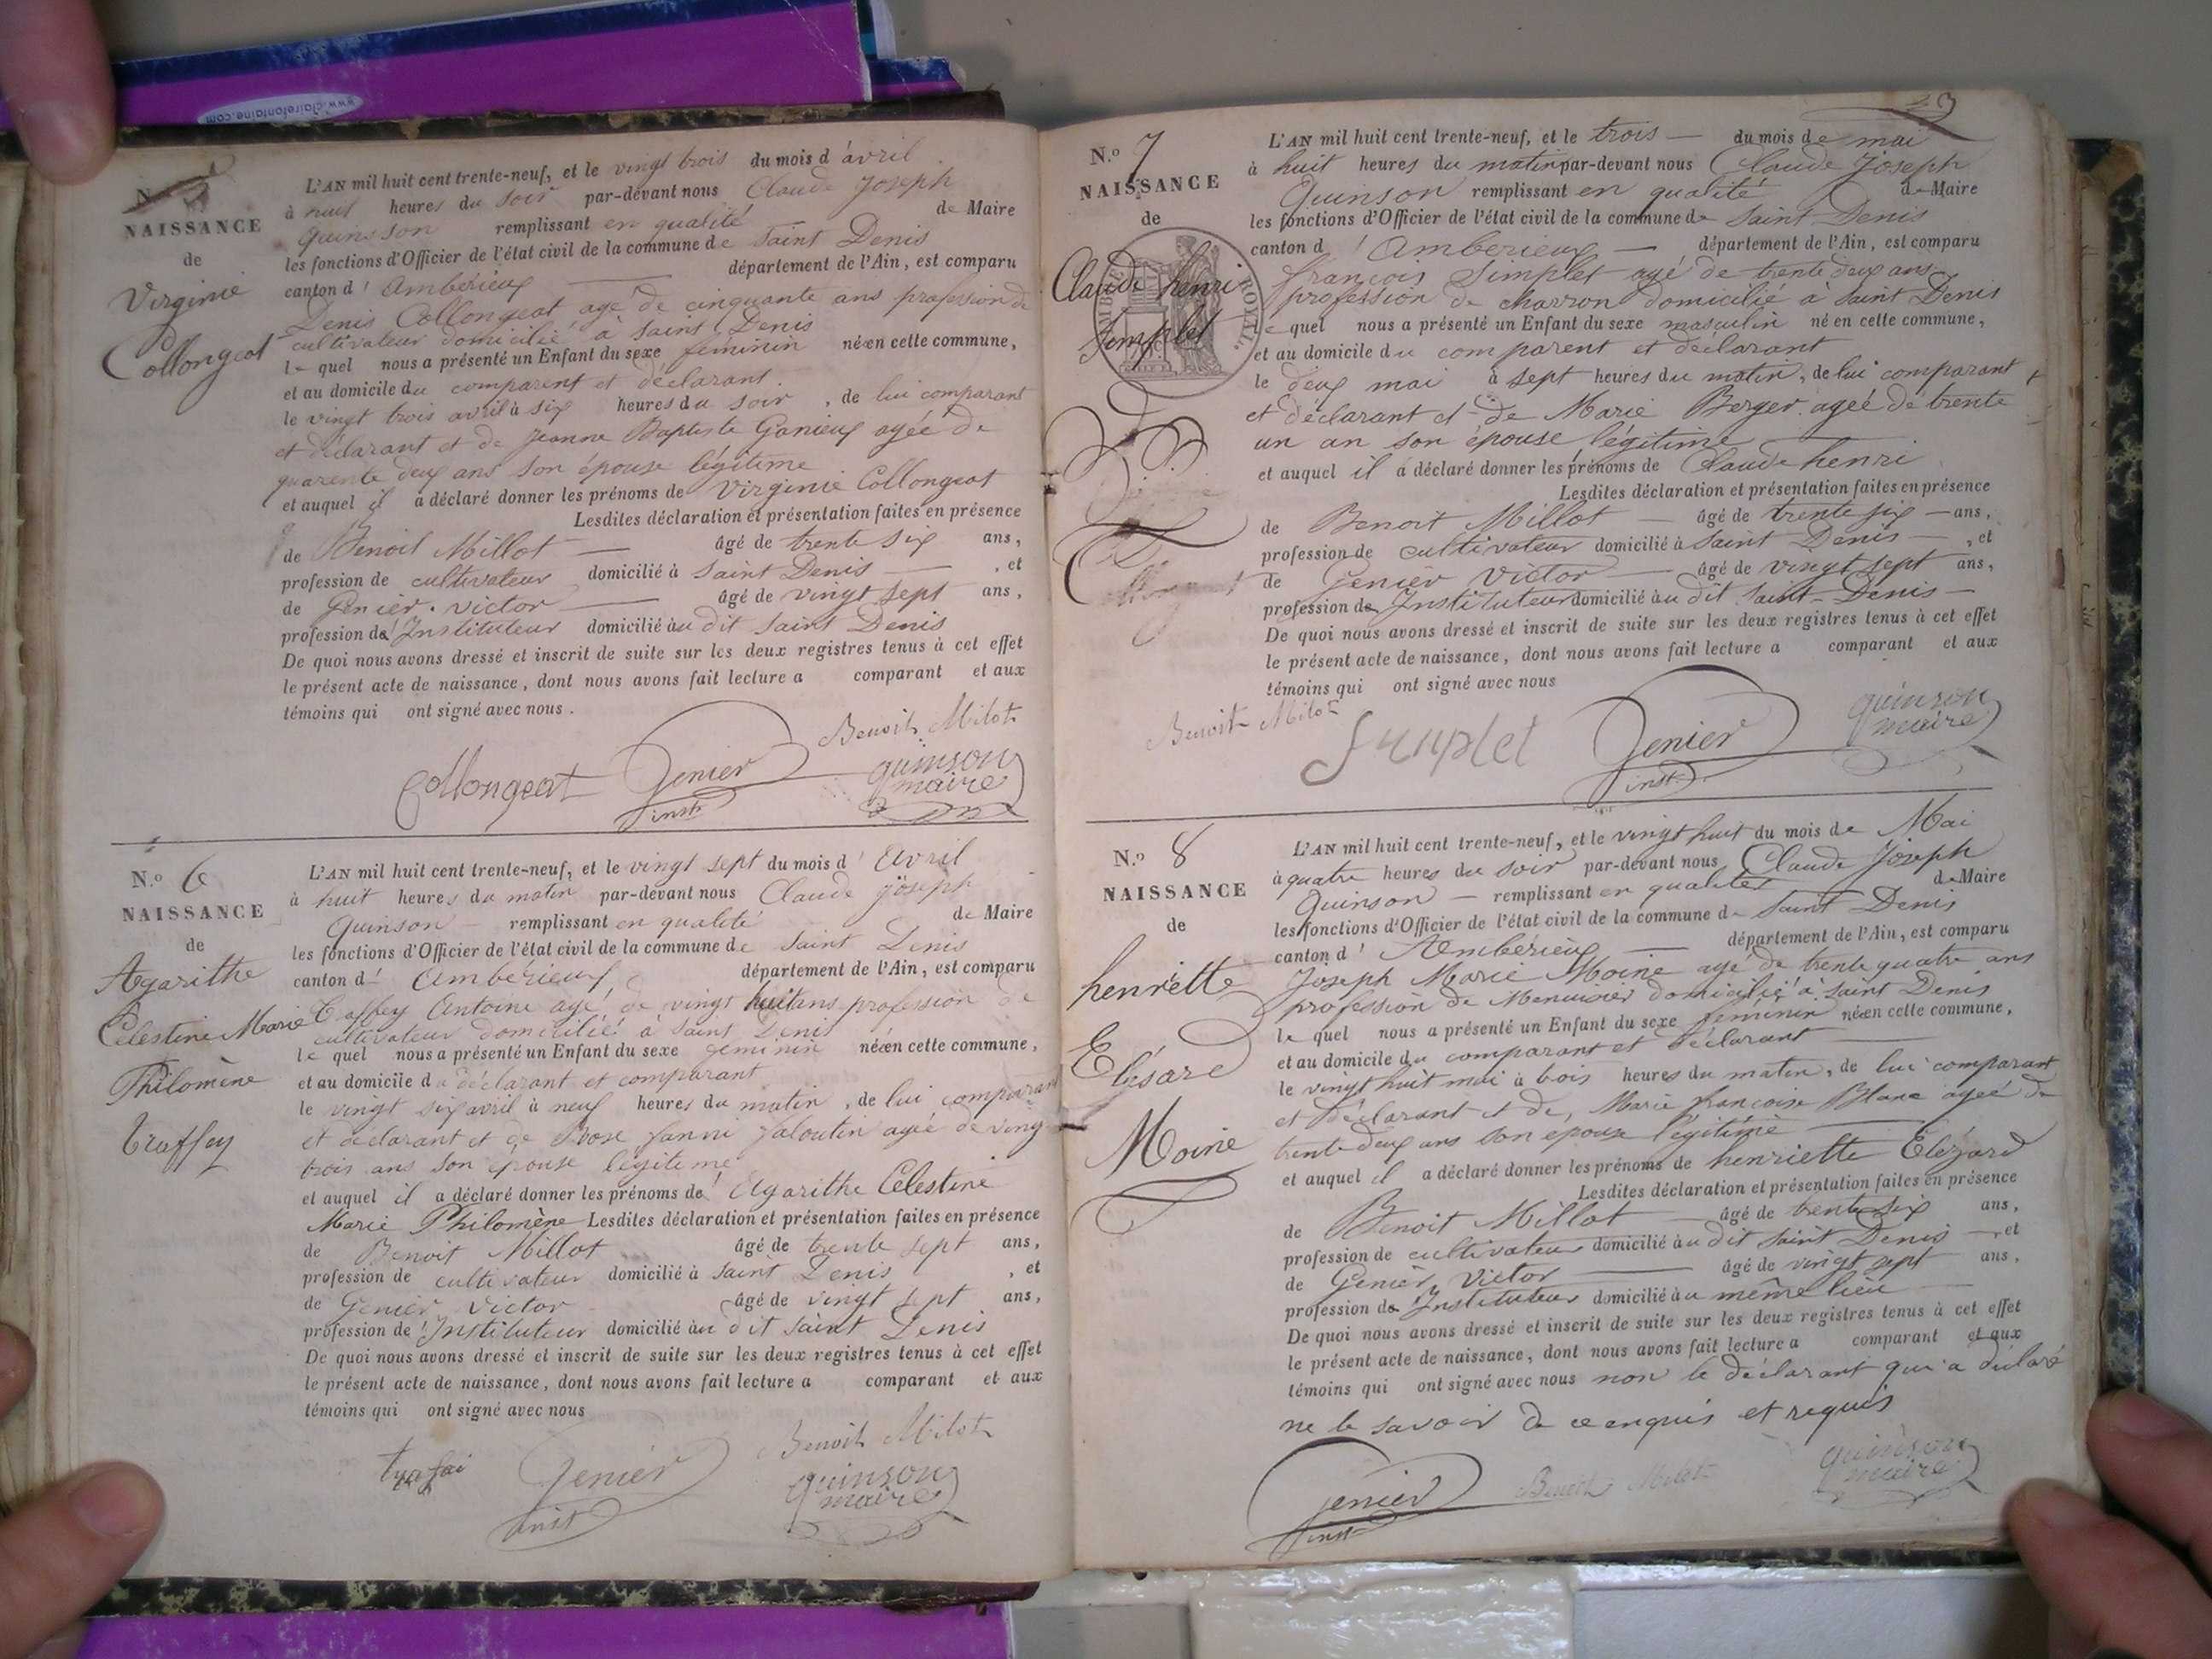 www.clairefontaine.com
N.o 5
NAISSANCE
de
Virginie
Collongeat
L'AN mil huit cent trente-neuf, et le vingt trois du mois d'avril
à huit heures du soir par-devant nous Claude Joseph
Quinsson remplissant en qualité de Maire
les fonctions d'Officier de l'état civil de la commune de Saint Denis
canton d'Ambérieux département de l'Ain, est comparu
Denis Collongeat agé de cinquante ans profession de
cultivateur domicilié à Saint Denis
le quel nous a présenté un Enfant du sexe féminin née en cette commune,
et au domicile du comparent et déclarant.
le vingt trois avril à six heures du soir, de lui comparant
et déclarant et de Jeanne Baptiste Ganieux agée de
quarente deux ans son épouse légitime
et auquel il a déclaré donner les prénoms de Virginie Collongeat
Lesdites déclaration et présentation faites en présence
de Benoit Millot âgé de trente six ans,
profession de cultivateur domicilié à Saint Denis, et
de Genier. Victor âgé de vingt sept ans,
profession d'Instituteur domicilié au dit Saint Denis
De quoi nous avons dressé et inscrit de suite sur les deux registres tenus à cet effet
le présent acte de naissance, dont nous avons fait lecture a comparant et aux
témoins qui ont signé avec nous.
Benoit Milot
Collongeat Genier quinson
inst. maire
N.o 6
NAISSANCE
de
Agarithe
Célestine Marie
Philomène
Traffey
L'AN mil huit cent trente-neuf, et le vingt sept du mois d'Avril
à huit heures du matin par-devant nous Claude Joseph
Quinson remplissant en qualité de Maire
les fonctions d'Officier de l'état civil de la commune de Saint Denis
canton d'Ambérieux département de l'Ain, est comparu
Traffey Antoine agé de vingt huit ans profession de
cultivateur domicilié à Saint Denis
le quel nous a présenté un Enfant du sexe féminin née en cette commune,
et au domicile du déclarant et comparant
le vingt six avril à neuf heures du matin, de lui comparant
et déclarant et de Rose fanni Jaloutin agée de vingt
trois ans son épouse légitime
et auquel il a déclaré donner les prénoms de Agarithe Célestine
Marie Philomène Lesdites déclaration et présentation faites en présence
de Benoit Millot âgé de trente sept ans,
profession de cultivateur domicilié à Saint Denis, et
de Genier Victor âgé de vingt sept ans,
profession d'Instituteur domicilié au dit Saint Denis
De quoi nous avons dressé et inscrit de suite sur les deux registres tenus à cet effet
le présent acte de naissance, dont nous avons fait lecture a comparant et aux
témoins qui ont signé avec nous
Benoit Milot
Genier quinson
inst maire
23
N.o 7
NAISSANCE
de
Claude henri
Simplet
L'AN mil huit cent trente-neuf, et le trois du mois de mai
à huit heures du matin par-devant nous Claude Joseph
Quinson remplissant en qualité de Maire
les fonctions d'Officier de l'état civil de la commune de Saint Denis
canton d'Ambérieux département de l'Ain, est comparu
françois Simplet agé de trente deux ans
profession de charron domicilié à Saint Denis
le quel nous a présenté un Enfant du sexe masculin né en cette commune,
et au domicile du comparent et déclarant
le deux mai à sept heures du matin, de lui comparant
et déclarant et de Marie Berger agée de trente
un an son épouse légitime
et auquel il a déclaré donner les prénoms de Claude henri
Lesdites déclaration et présentation faites en présence
de Benoit Millot âgé de trente six ans,
profession de cultivateur domicilié à Saint Denis, et
de Genier Victor âgé de vingt sept ans,
profession d'Instituteur domicilié au dit Saint-Denis
De quoi nous avons dressé et inscrit de suite sur les deux registres tenus à cet effet
le présent acte de naissance, dont nous avons fait lecture a comparant et aux
témoins qui ont signé avec nous
Benoit Milot Simplet Genier quinson
inst. maire
N.o 8
NAISSANCE
de
henriette
Elésare
Moine
L'AN mil huit cent trente-neuf, et le vingt huit du mois de Mai
à quatre heures du soir par-devant nous Claude Joseph
Quinson remplissant en qualité de Maire
les fonctions d'Officier de l'état civil de la commune de Saint Denis
canton d'Ambérieux département de l'Ain, est comparu
Joseph Marie Moine agé de trente quatre ans
profession de Menuisier domicilié à Saint Denis
le quel nous a présenté un Enfant du sexe féminin née en cette commune,
et au domicile du comparant et déclarant
le vingt huit mai à trois heures du matin, de lui comparant
et déclarant et de, Marie françoise Blanc agée de
trente deux ans son épouse légitime
et auquel il a déclaré donner les prénoms de henriette Elézard
Lesdites déclaration et présentation faites en présence
de Benoit Millot âgé de trente six ans,
profession de cultivateur domicilié au dit Saint Denis, et
de Genier Victor âgé de vingt sept ans,
profession d'Instituteur domicilié au même lieu
De quoi nous avons dressé et inscrit de suite sur les deux registres tenus à cet effet
le présent acte de naissance, dont nous avons fait lecture a comparant et aux
témoins qui ont signé avec nous non le déclarant qui a déclaré
ne le savoir de ce enquis et requis
Genier Benoit Milot quinson
inst maire